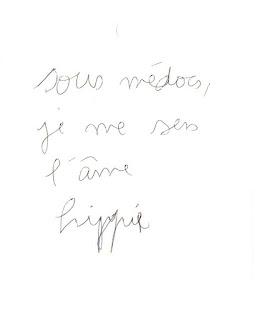 sous médocs,
je me sens
l'âme
hippie